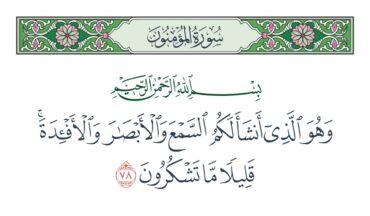 سُورَةُ المُؤۡمِنُونَ
بِسۡمِ ٱللَّهِ ٱلرَّحۡمَٰنِ ٱلرَّحِيمِ
وَهُوَ ٱلَّذِيٓ أَنشَأَ لَكُمُ ٱلسَّمۡعَ وَٱلۡأَبۡصَٰرَ وَٱلۡأَفۡـِٔدَةَۚ
قَلِيلٗا مَّا تَشۡكُرُونَ ٧٨